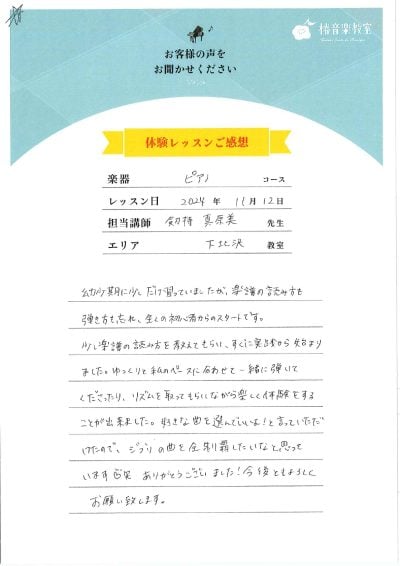 椿音楽教室
お客様の声を
お聞かせください
体験レッスンご感想
楽器 ピアノ コース
レッスン日 2024 年 11月 12日
担当講師 釼持 真原美 先生
エリア 下北沢 教室
幼少期に少しだけ習っていましたが、楽譜の読み方も
弾き方も忘れ、全くの初心者からのスタートです。
少し楽譜の読み方を教えてもらい、すぐに実践から始まり
ました。ゆっくりと私のペースに合わせて一緒に弾いて
くださったり、リズムを取ってもらいながら楽しく体験をする
ことが出来ました。好きな曲を選んでいいよ!と言っていただ
けたので、ジブリの曲を全制覇したいなと思って
います ありがとうございました!今後ともよろしく
お願い致します。